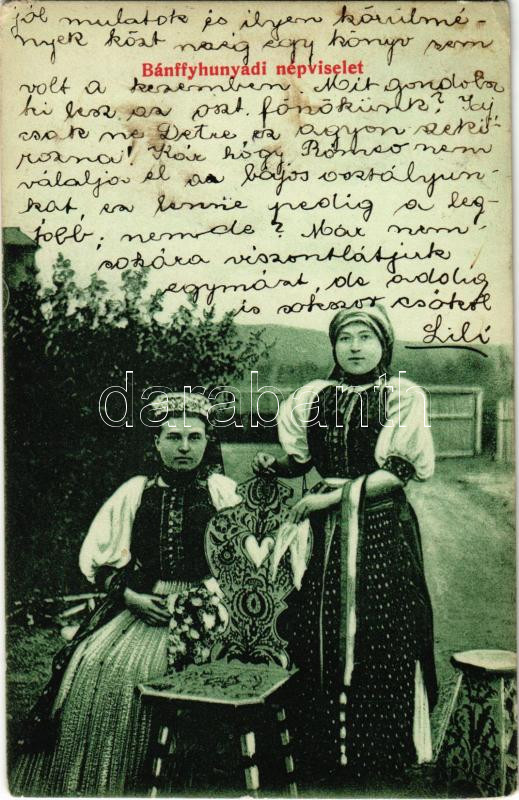 jól mulatok és ilyen körülmé-
nyek közt naság egy könyv sem
Bánffyhunyadi népviselet
volt a kezemben. Mit gondolsz
ki lesz az oszt. főnökünk? Ily
csak ne Detre ez agyon szeki-
rozna! Kár hogy Rómeo nem
vállalja el az bájos osztályun-
kat, ez lenne pedig a leg-
jobb, nemde? Már nem-
sokára viszontlátjuk
egymást, de addig
is sokszor csókol
Lili
darabanth